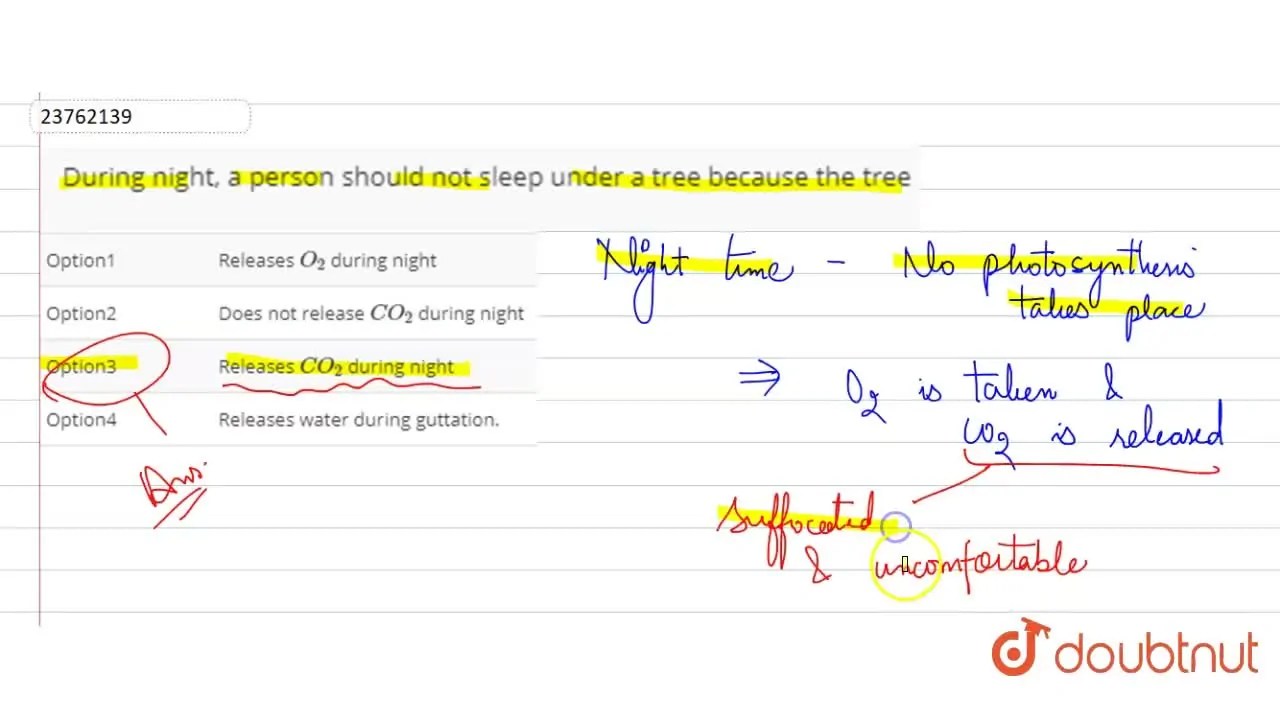 23762139
During night, a person should not sleep under a tree because the tree
Option1 Releases O₂ during night
Option2 Does not release CO₂ during night
Option3 Releases CO₂ during night
Option4 Releases water during guttation.
Ans:
Night time - No photosynthesis
takes place
⇒ O₂ is taken &
CO₂ is released
suffocated
& uncomfortable
doubtnut